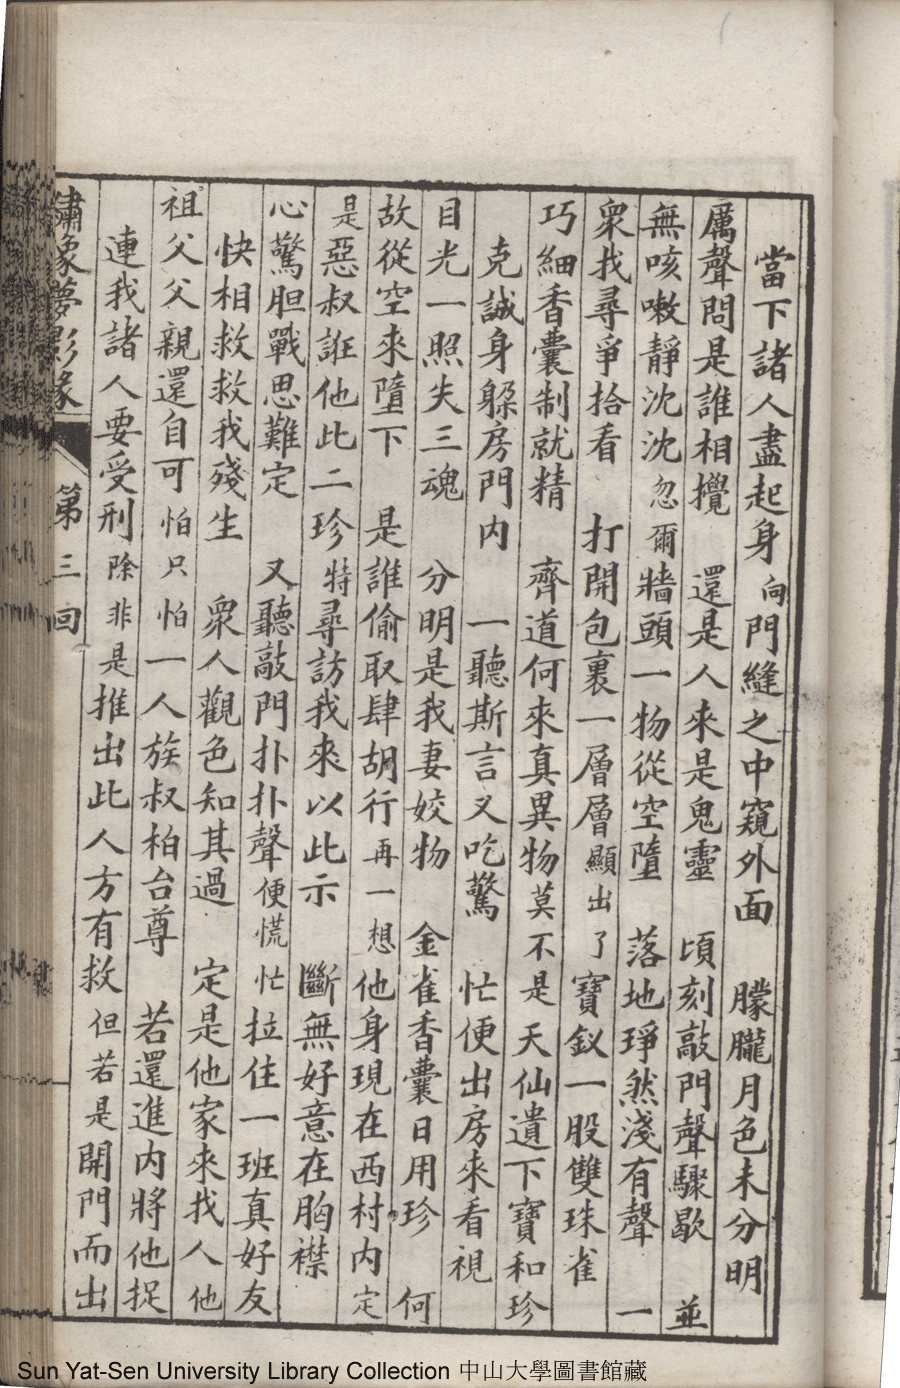 當下諸人盡起身向門縫之中窺外面　朦朧月色未分明
厲聲問是誰相攪　還是人來是鬼靈　頃刻敲門聲驟歇　並
無咳嗽靜沈沈忽爾牆頭一物從空墮　落地琤然淺有聲　一
眾找尋爭拾看　打開包裏一層層顯出了寶釵一股雙珠雀
巧細香囊制就精　齊道何來真異物莫不是天仙遺下寶和珍
克誠身躱房門內　一聽斯言又吃驚　忙便出房來看視
目光一照失三魂　分明是我妻姣物　金雀香囊日用珍　何
故從空來墮下　是誰偷取肆胡行再一想他身現在西村內定
是惡叔誑他此二珍特尋訪我來以此示　斷無好意在胸襟
心驚胆戰思難定　又聽敲門扑扑聲便慌忙拉住一班真好友
快相救救我殘生　眾人觀色知其過　定是他家來找人他
祖父父親還自可怕只怕一人族叔柏台尊　若還進內將他捉
連我諸人要受刑除非是推出此人方有救但若是開門而出
繡像夢影緣　第三回
Sun Yat-Sen University Library Collection 中山大學圖書館藏